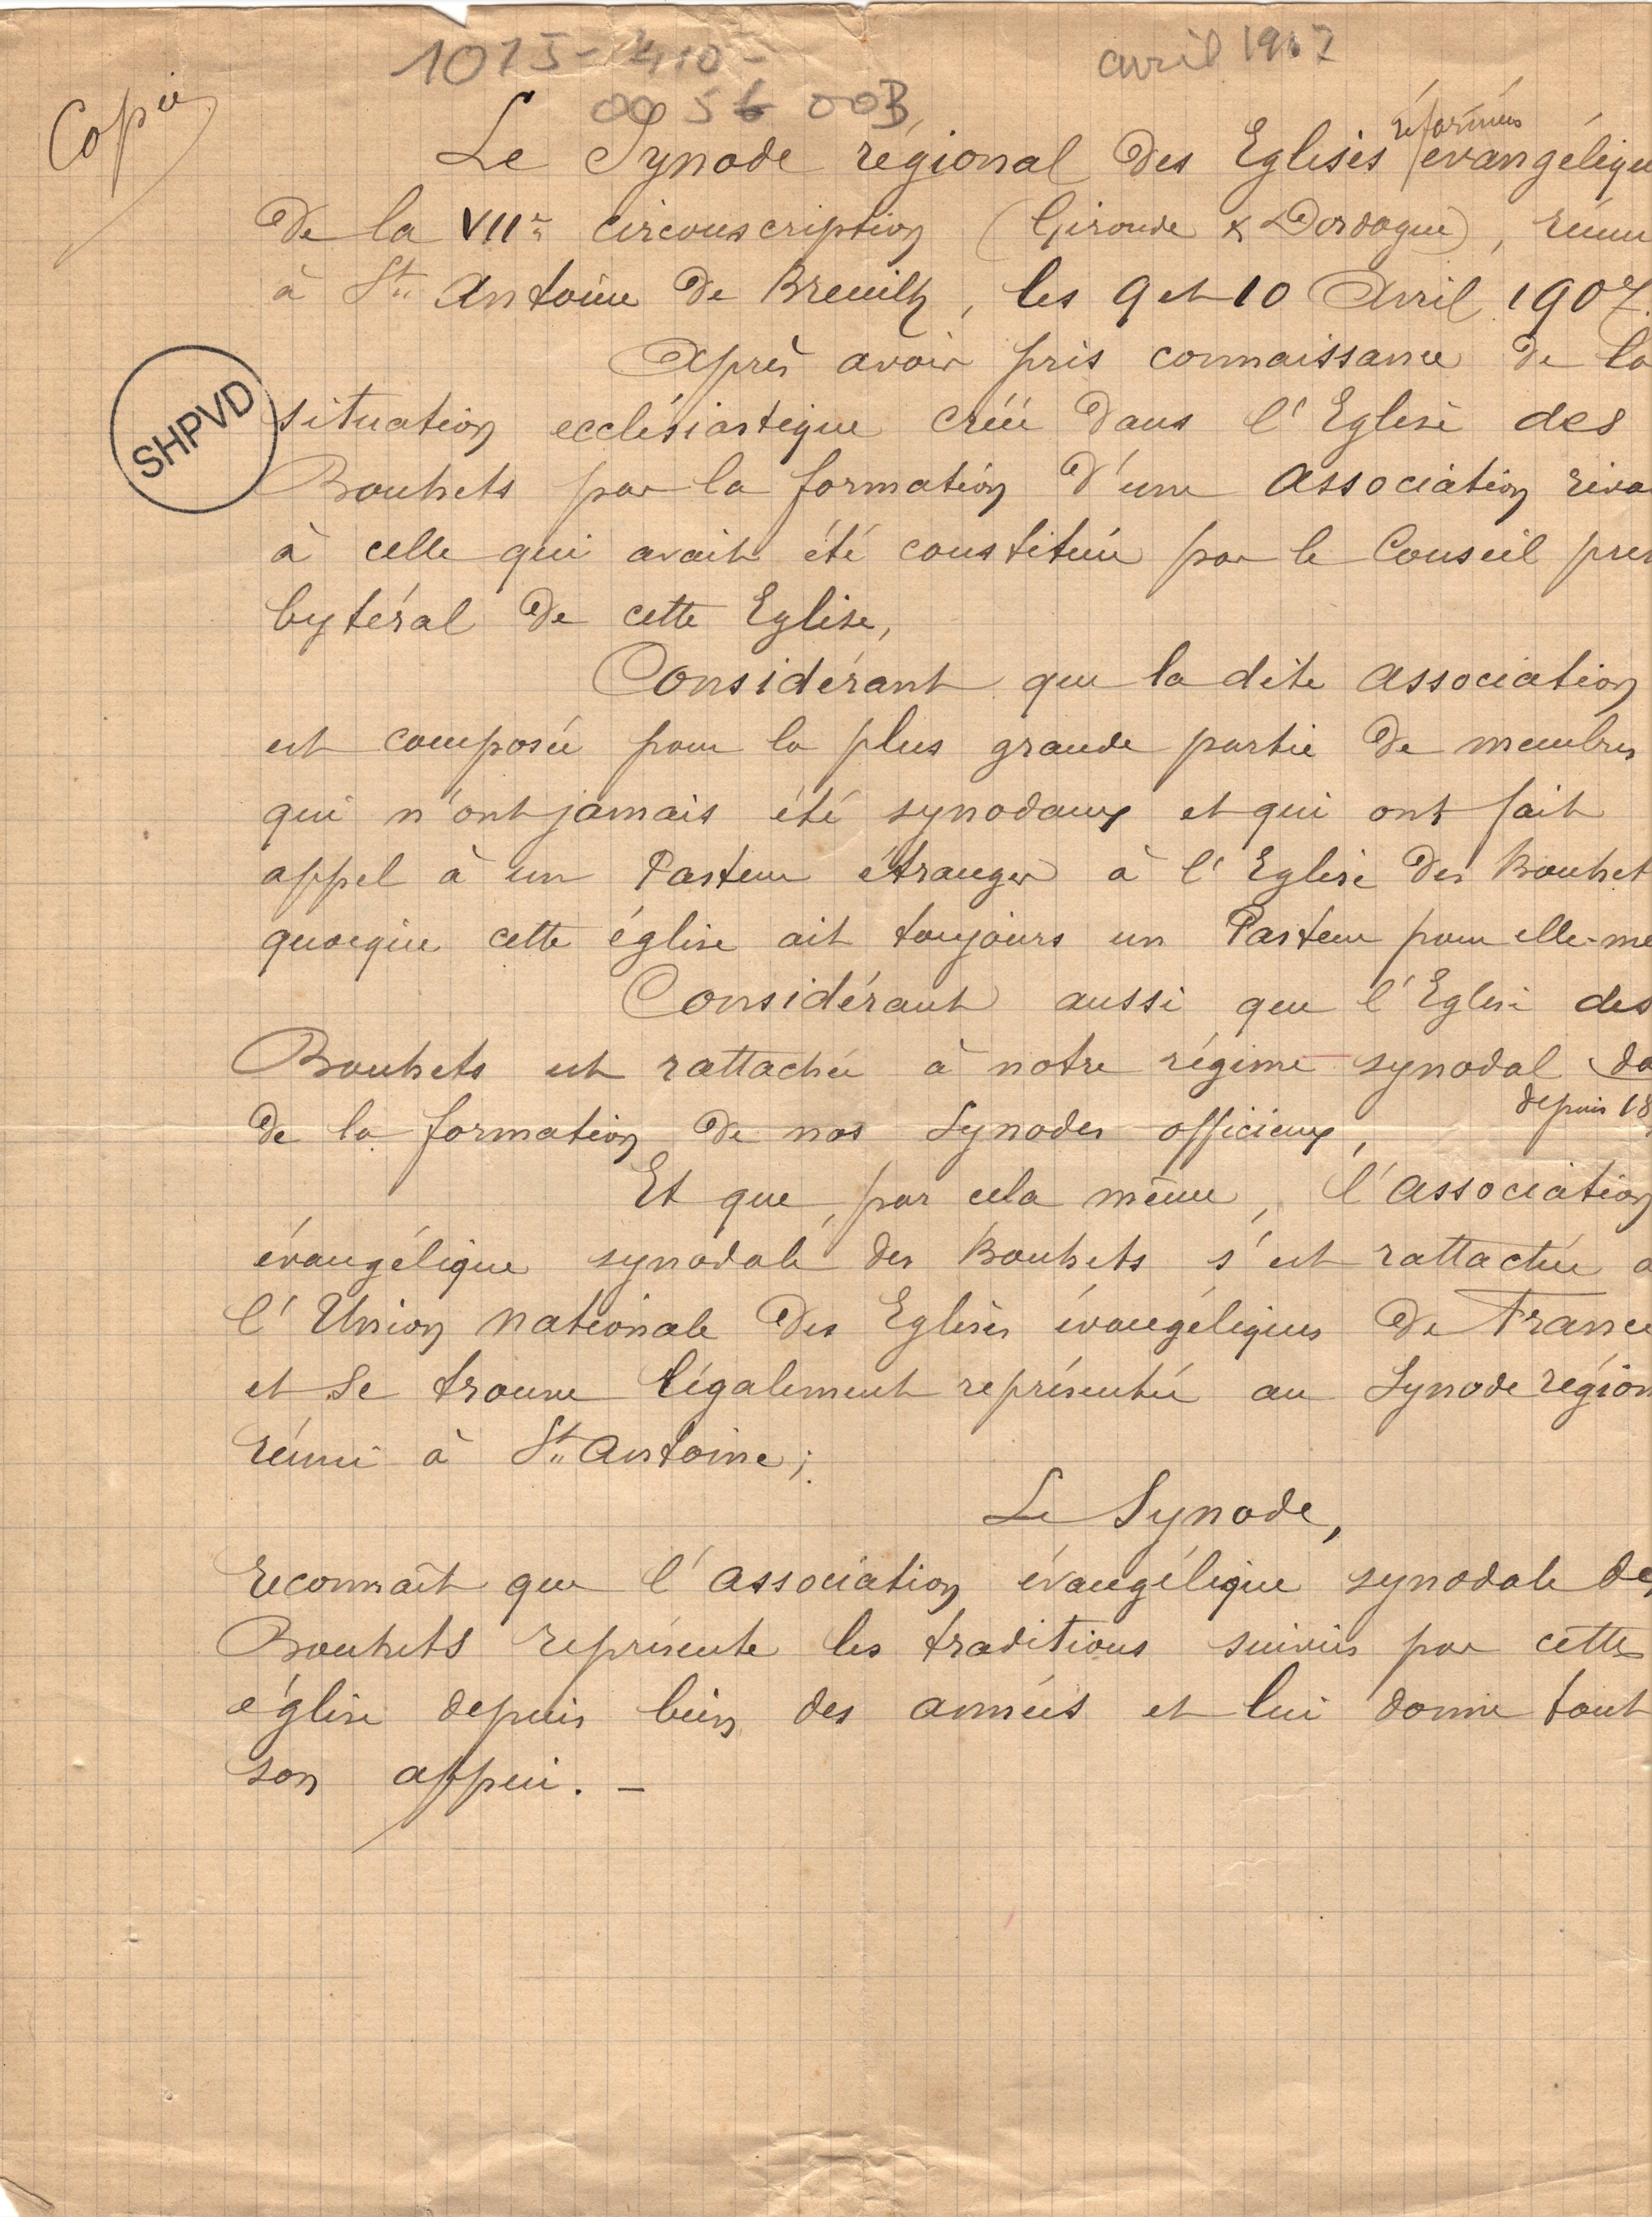 1015-410-
avril 1907
0056 00B
Copie
réformées
Le Synode régional des Eglises évangélique
de la VIIe circonscription (Gironde & Dordogne), réuni
à St Antoine de Breuilh, les 9 et 10 Avril 1907.
Après avoir pris connaissance de la
SHPVD
situation ecclésiastique créée dans l'Eglise des
Bouhets par la formation d'une Association riva
à celle qui avait été constituée par le Conseil pres
bytéral de cette Eglise,
Considérant que la dite Association
est composée pour la plus grande partie de membres
qui n'ont jamais été synodaux et qui ont fait
appel à un Pasteur étranger à l'Eglise des Bouhet
quoique cette église ait toujours un Pasteur pour elle-mê
Considérant aussi que l'Eglise des
Bouhets est rattachée à notre régime synodal da
depuis 18
de la formation de nos Synodes officieux,
Et que, par cela même, l'Association
évangélique synodale des Bouhets s'est rattachée à
l'Union nationale des Eglises évangéliques de France
et se trouve légalement représentée au Synode région
réuni à St Antoine;
Le Synode,
reconnaît que l'association évangélique synodale des
Bouhets représente les traditions suivies par cette
église depuis bien des années et lui donne tout
son appui. -